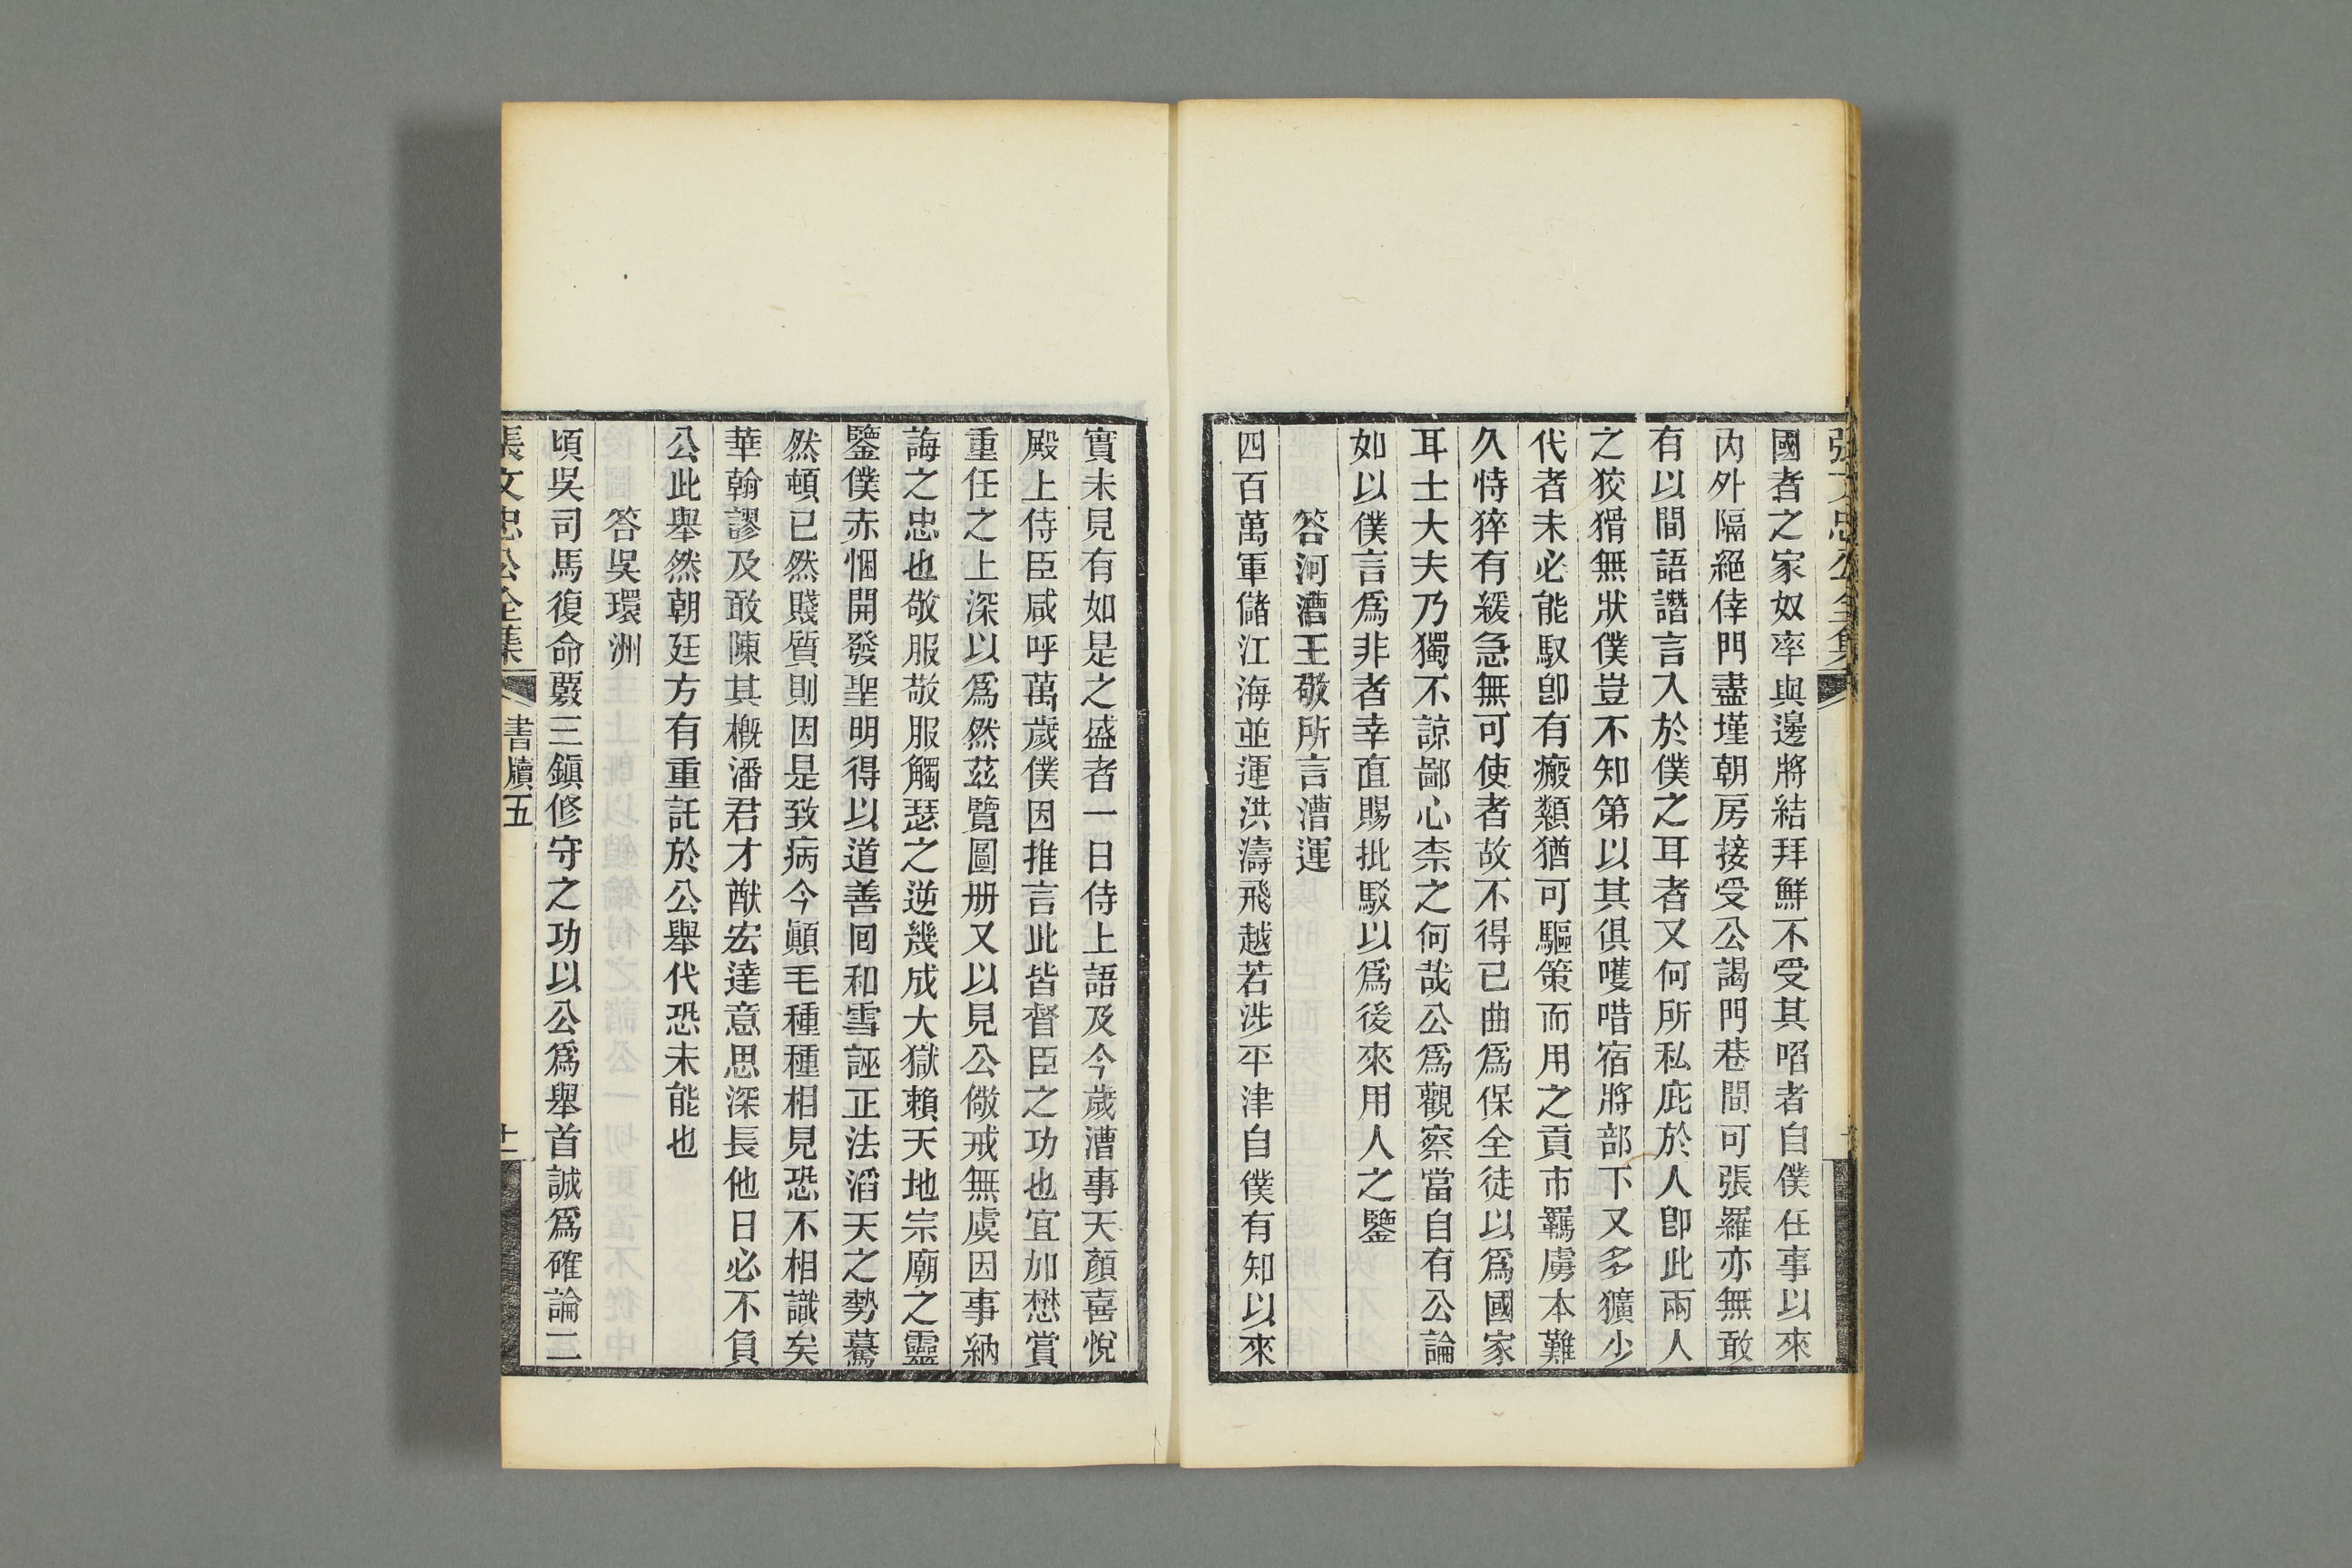 張文忠公全集
國者之家奴率與邊將結拜鮮不受其啗者自僕任事以來
內外隔絕倖門盡墐朝房接受公謁門巷間可張羅亦無敢
有以間語譖言入於僕之耳者又何所私庇於人卽此兩人
之狡猾無狀僕豈不知第以其俱嚄唶宿將部下又多獷少
代者未必能馭卽有瘢纇猶可驅策而用之貢市羈虜本難
久恃猝有緩急無可使者故不得已曲爲保全徒以爲國家
耳士大夫乃獨不諒鄙心柰之何哉公爲觀察當自有公論
如以僕言爲非者幸直賜批駁以爲後來用人之鑒
答河漕王敬所言漕運
四百萬軍儲江海並運洪濤飛越若涉平津自僕有知以來
實未見有如是之盛者一日侍上語及今歲漕事天顏喜悅
殿上侍臣咸呼萬歲僕因推言此皆督臣之功也宜加懋賞
重任之上深以爲然茲覽圖册又以見公儆戒無虞因事納
誨之忠也敬服敬服觸瑟之逆幾成大獄賴天地宗廟之靈
鑒僕赤悃開發聖明得以道善囘和雪誣正法滔天之勢驀
然頓已然賤質則因是致病今顚毛種種相見恐不相識矣
華翰謬及敢陳其概潘君才猷宏達意思深長他日必不負
公此舉然朝廷方有重託於公舉代恐未能也
答吳環洲
頃吳司馬復命覈三鎭修守之功以公爲舉首誠爲確論二
張文忠公全集 書牘五